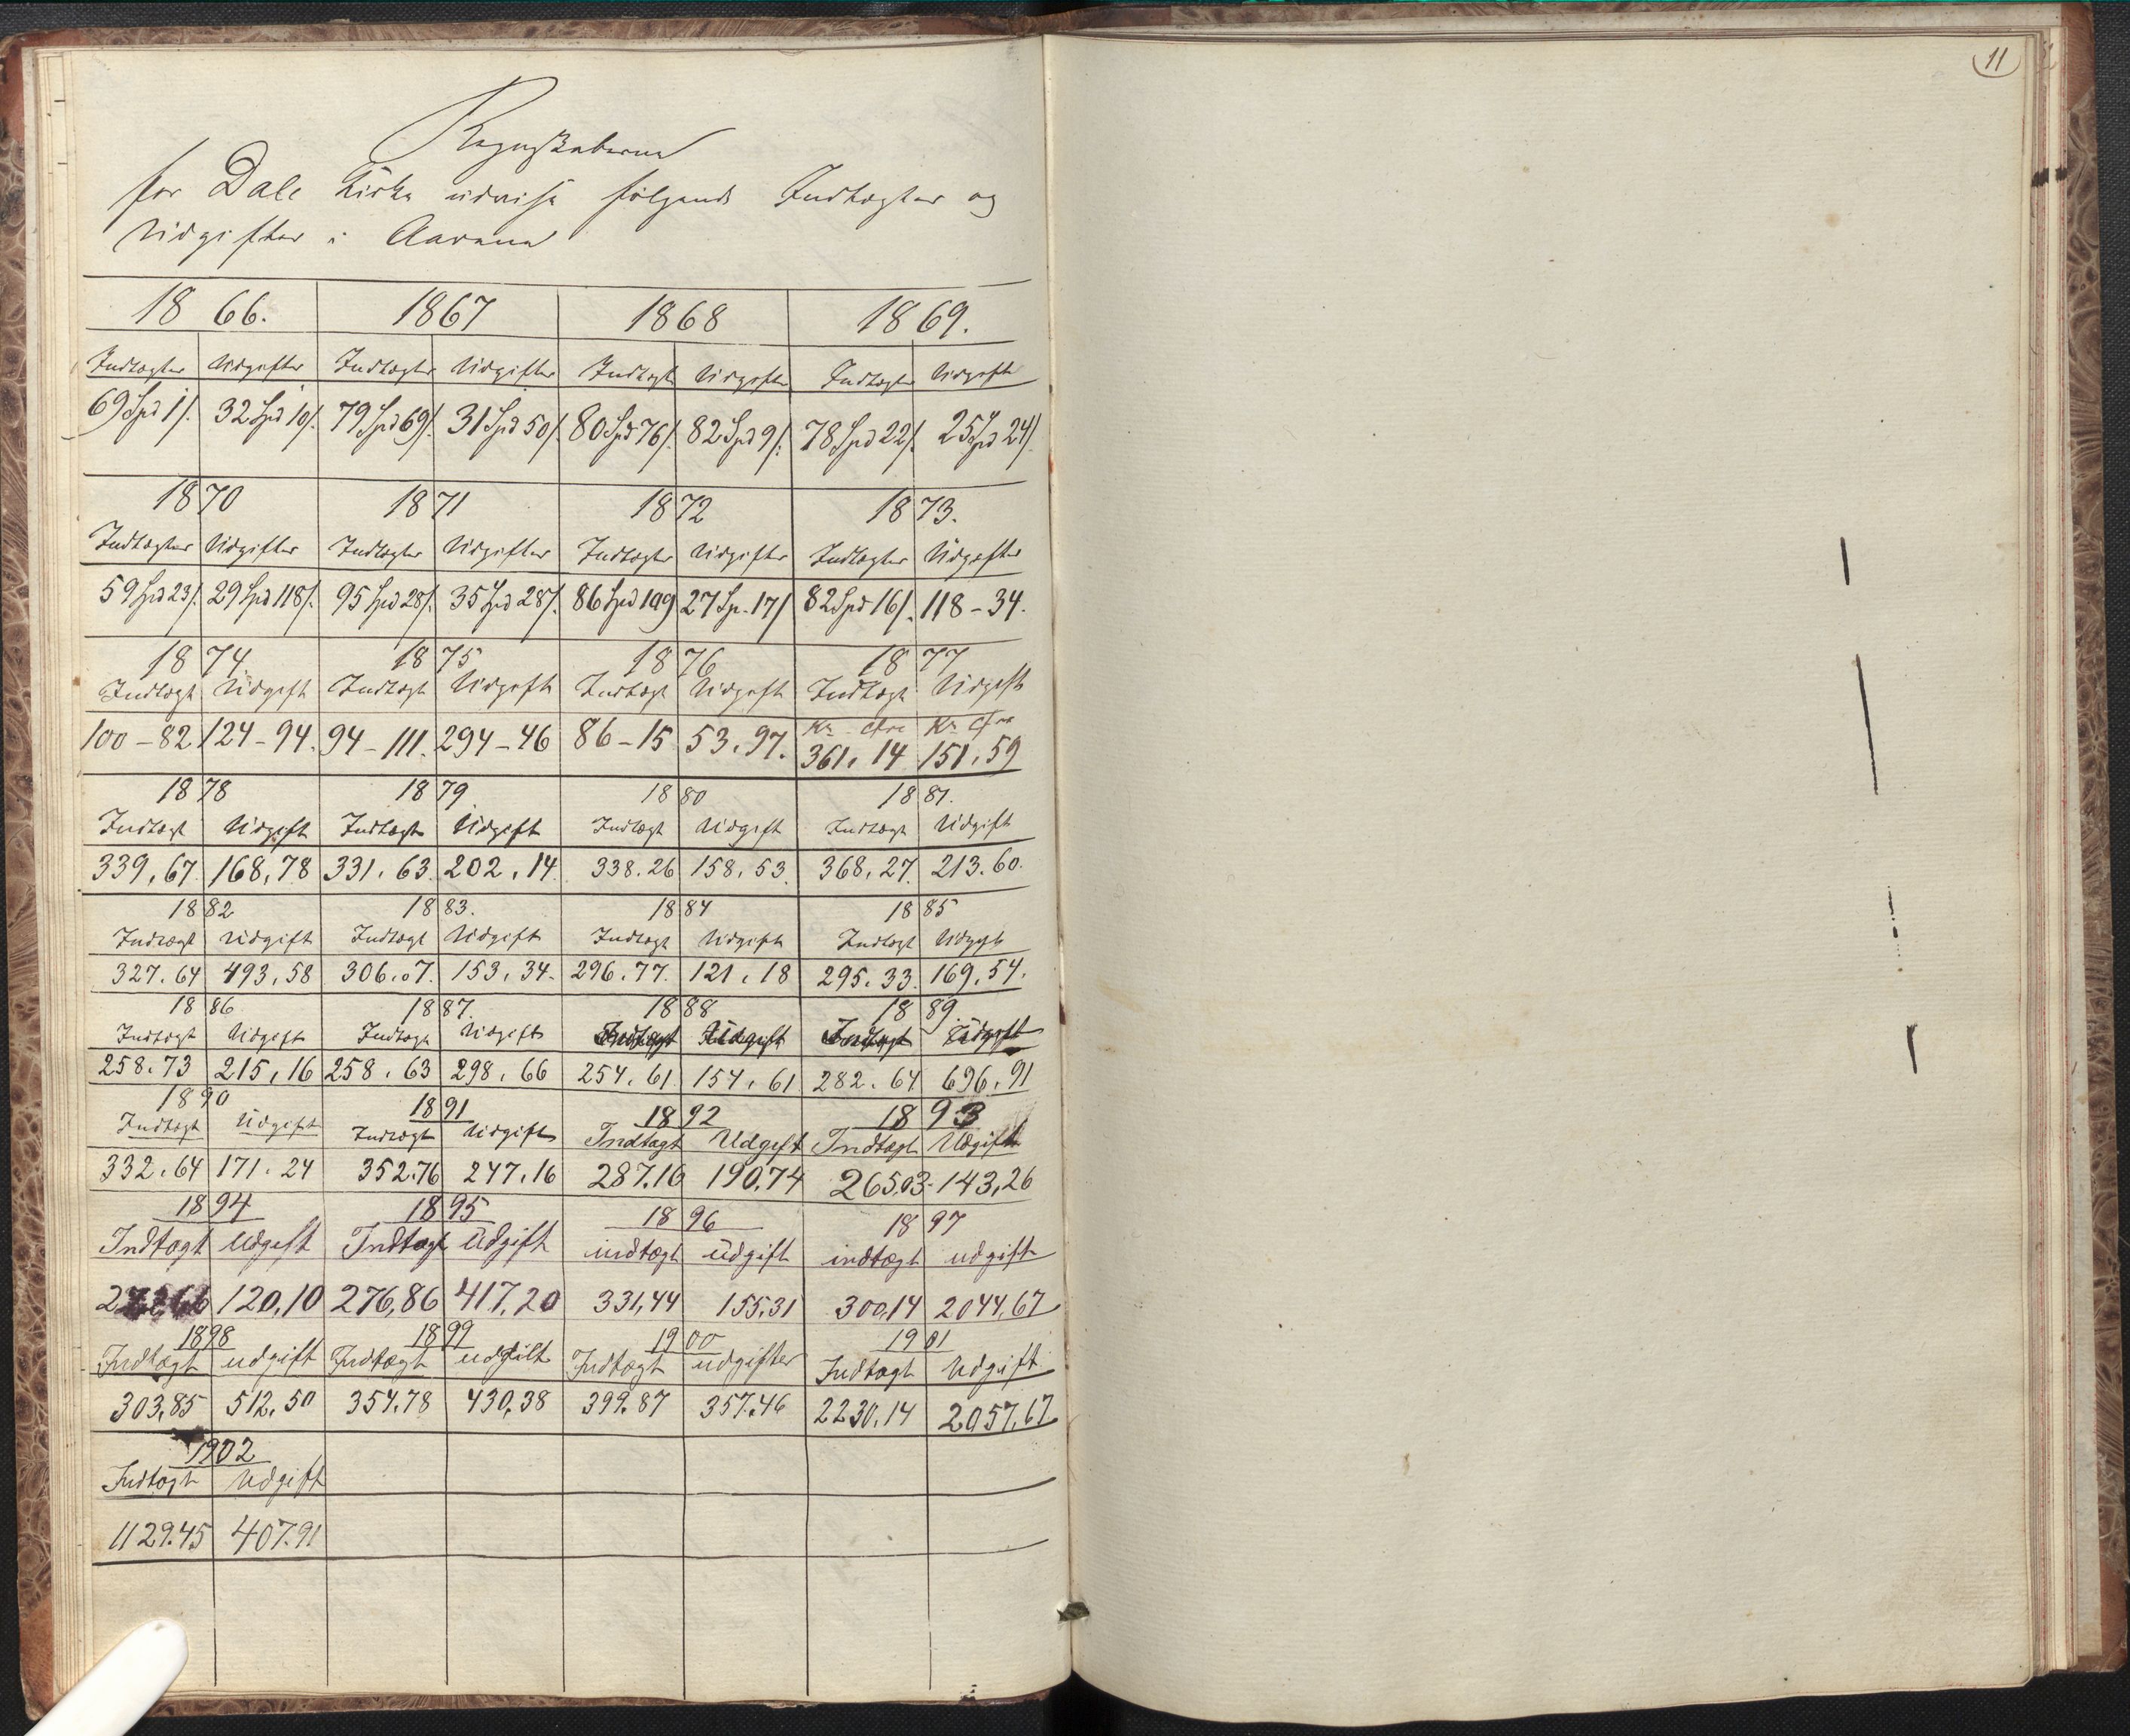 Regnskaberne
for Dale Kirke udvise følgende Indtægter og
Udgifter i Aarene
1866. 1867 1868 1869.
Indtægter Udgifter Indtægter Udgifter Indtægt Udgifter Indtægter Udgift
69 Spd 1 ß. 32 Spd 10 ß. 79 Spd 69 ß. 31 Spd 50 ß. 80 Spd 76 ß. 82 Spd 9 ß. 78 Spd 22 ß. 25 Spd 24 ß
1870 1871 1872 1873.
Indtægter Udgifter Indtægter Udgifter Indtægter Udgifter Indtægter Udgifter
59 Spd 23 ß. 29 Spd 118 ß. 95 Spd 28 ß. 35 Spd 28 ß. 86 Spd 109 27 Sp. 17 ß 82 Spd 16 ß. 118-34.
1874. 1875 1876 1877
Indtægt Udgift Indtægt Udgift Indtægt Udgift Indtægt Udgift
Kr Øre Kr Øre
100-82 124-94. 94-111. 294-46 86-15 53.97. 361, 14 151,59
1878 1879 1880 1881.
Indtægt Udgift Indtægt Udgift Indtægt Udgift Indtægt Udgift
339,67. 168,78 331,63. 202,14. 338.26 158,53. 368,27. 213.60.
1882 1883. 1884 1885
Indtægt Udgift Indtægt Udgift Indtægt Udgift Indtægt Udgift
327.64 493,58 306.07. 153,34. 296.77. 121,18 295.33. 169,54.
1886 1887. 1888 1889
Indtægt Udgift Indtægt Udgift Indtægt Udgift Indtægt Udgift
258.73 215,16 258.63 298,66 254.61 154,61 282.64 696,91
1890 1891 1892 1893
Indtægt Udgift Indtægt Udgift Indtægt Udgift Indtægt Udgift
332.64 171.24 352.76 247.16 287.16 190.74 265,03. 143,26
1894 1895 1896 1897
Indtægt Udgift Indtægt Udgift indtægt udgift indtægt udgift
120,10 276,86 417,20 331,44 155,31 300,14 2044,67
1898 1899 1900 1901
Indtægt udgift Indtægt udgift Indtægt udgifter Indtægt Udgift
303,85 512,50 354.78 430,38 399.87 357.46 2230.14 2057.67
1902
Indtægt Udgift
1129.45 407.91
11